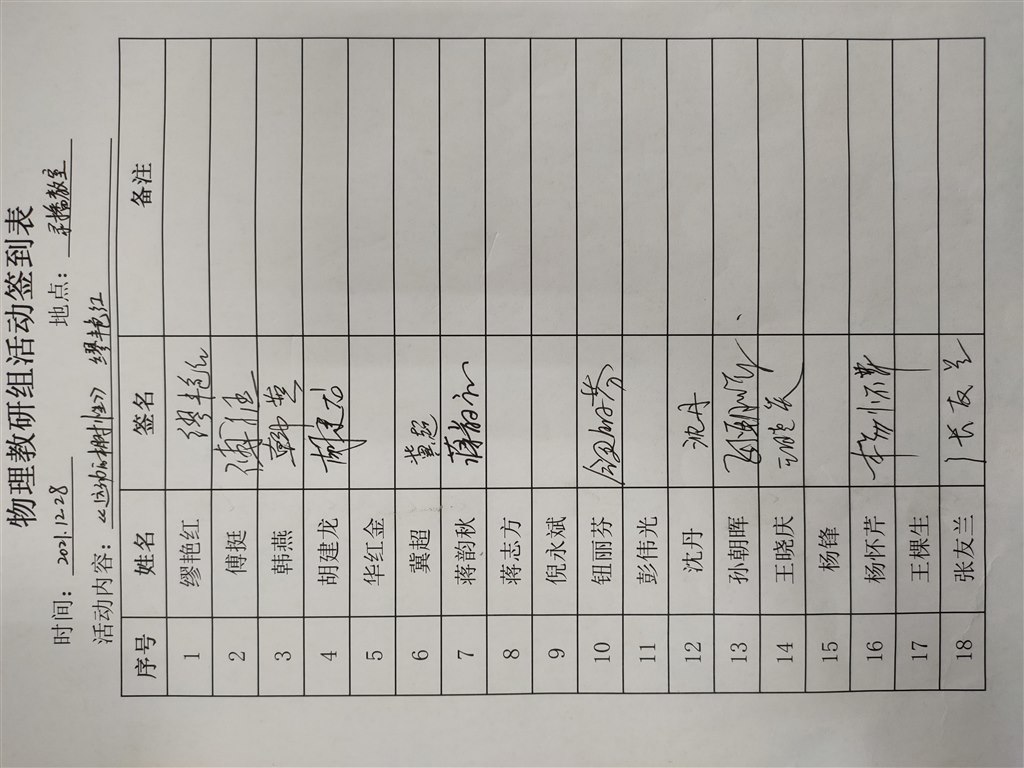 物理教研组活动签到表
时间：2021.12.28 地点：录播教室
活动内容：《运动的相对性》 缪艳红
序号 姓名 签名 备注
1 缪艳红 缪艳红
2 傅挺 傅挺
3 韩燕 韩燕
4 胡建龙 胡建龙
5 华红金
6 冀超 冀超
7 蒋韵秋 蒋韵秋
8 蒋志方
9 倪永斌
10 钮丽芬 钮丽芬
11 彭伟光
12 沈丹 沈丹
13 孙朝晖 孙朝晖
14 王晓庆 王晓庆
15 杨锋
16 杨怀芹 杨怀芹
17 王棵生
18 张友兰 张友兰